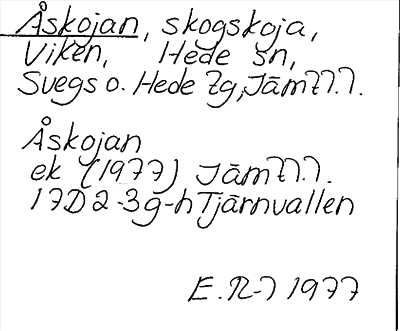 Åskojan, skogskoja,
Viken, Hede sn,
Svegs o. Hede tg, Jämtl.
Åskojan
ek (1977) Jämtl.
17D 2-3g-h Tjärnvallen
1977